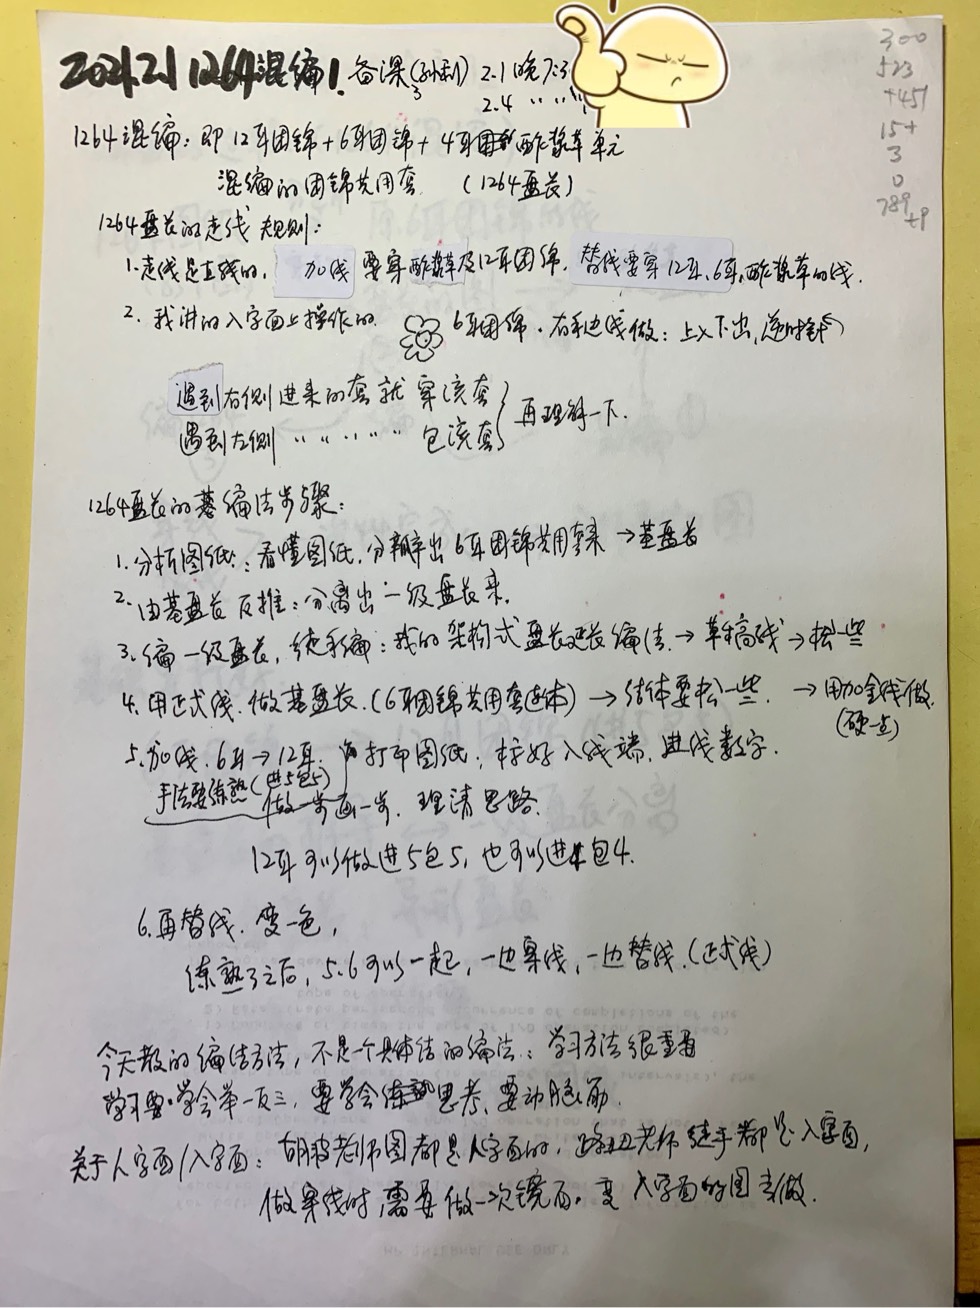 2021.2.1 1264混编1. 备课 2.1晚7:3
2.4 〃 〃 〃
300
523
+451
15+
3
0
789
+9
1264混编: 即12耳团锦+6耳团锦+4耳酢浆草单元
混编的团锦共用套 (1264盘长)
1264盘长的走线规则:
1.走线是直线的, 加线要穿酢浆草及12耳团锦, 替线要穿12耳、6耳、酢浆草的线.
2. 我讲的入字面上操作的. 6耳团锦. 右手边线做: 上入下出, 逆时针
遇到右侧进来的套就穿该套
遇到左侧 〃 〃 〃 〃 〃 包该套
再理解一下.
1264盘长的编法步骤:
1.分析图纸: 看懂图纸, 分辨出6耳团锦共用套来→基盘长
2.由基盘长反推: 分离出一级盘长来.
3.编一级盘长, 徒手编: 我的架构式盘长延长编法→草稿线→松一些
4.用正式线. 做基盘长.(6耳团锦共用套连体)→结体要松一些. →用加金线做.
(硬一点)
5.加线. 6耳→12耳. 打印图纸, 标好入线端, 进线数字.
手法要练熟(进5包5) 做一步画一步. 理清思路.
12耳可以做进5包5, 也可以进4包4.
6.再替线. 变一色,
练熟了之后, 5.6可以一起, 一边穿线, 一边替线.(正式线)
今天教的编结方法, 不是一个具体结的编法: 学习方法很重要
学习要学会举一反三, 要学会思考, 要动脑筋.
关于人字面/入字面: 胡波老师图都是人字面的, 老师徒手都是入字面,
做穿线时需要做一次镜面, 变入字面的图去做.